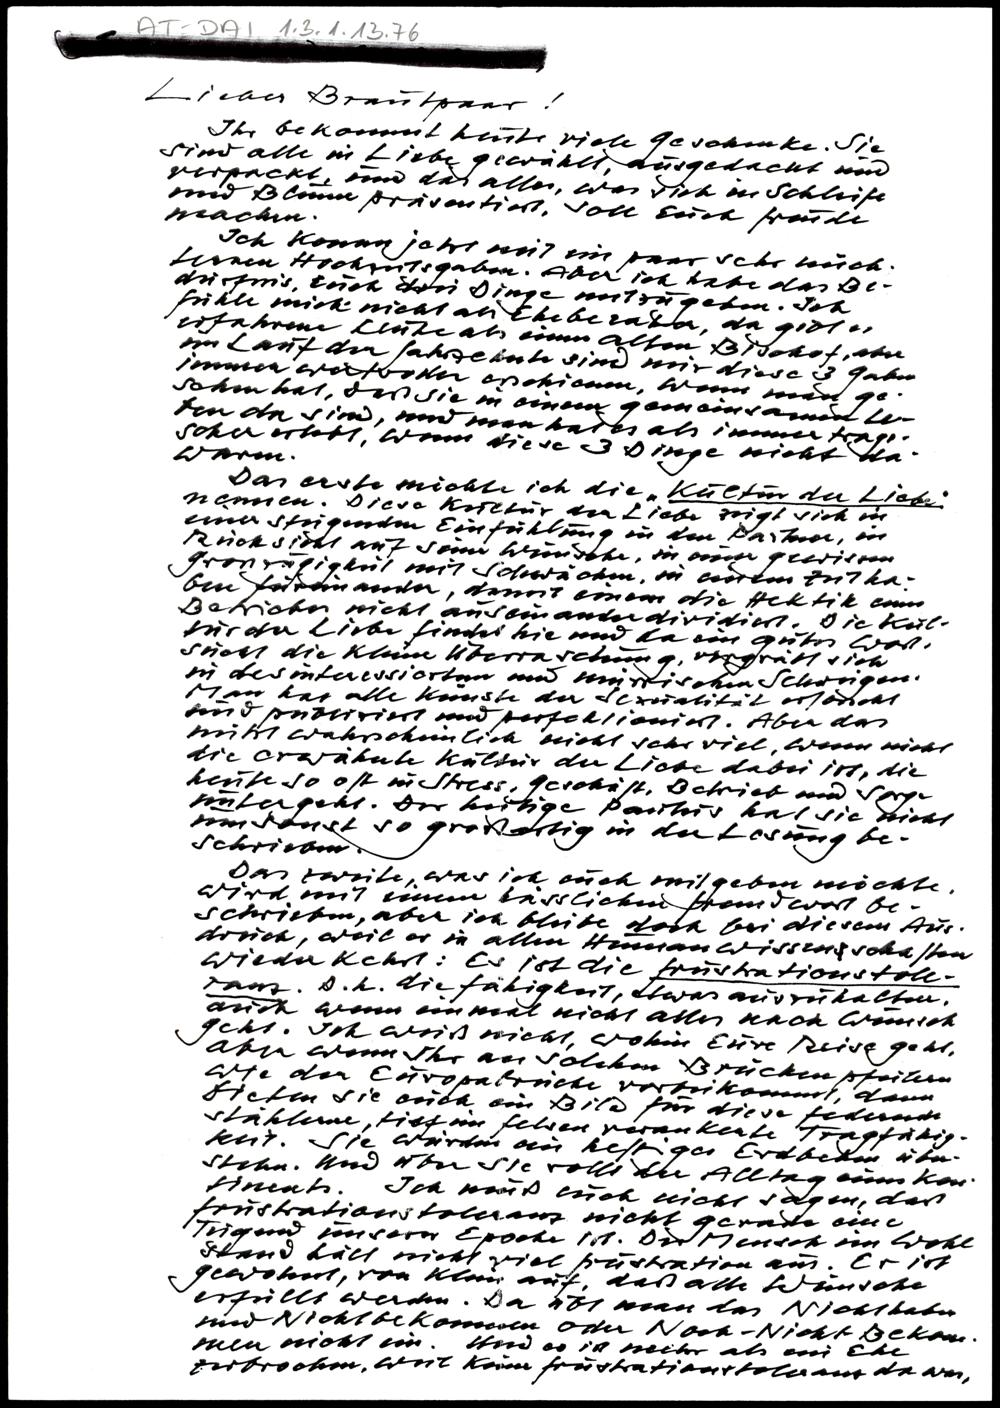 AT-DAI 1.3.1.13.76
Liebes Brautpaar!
Ihr bekommt heute viele Geschenke. Sie
sind alle in Liebe gewählt, ausgedacht und
verpackt, und das alles, was sich in Schleife
und Blume präsentiert, soll Euch Freude
machen.
Ich komme jetzt mit ein paar sehr nüch-
ternen Hochzeitsgaben. Aber ich habe das Be-
dürfnis, Euch drei Dinge mitzugeben. Ich
fühle mich nicht als Eheberater, da gibt es
erfahrene Leute als einen alten Bischof, aber
im Lauf der Jahrzehnte sind mir diese 3 Gaben
immer wertvoller erschienen, wenn man ge-
sehen hat, daß sie in einem gemeinsamen Le-
ben da sind, und man hat es als immer tragi-
scher erlebt, wenn diese 3 Dinge nicht da-
waren.
Das erste möchte ich die „Kultur der Liebe"
nennen. Diese Kultur der Liebe zeigt sich in
einer steigenden Einfühlung in den Partner, in
Rücksicht auf seine Wünsche, in einer gewissen
Großzügigkeit mit Schwächen, in einem Zeit ha-
ben füreinander, damit einem die Hektik eines
Betriebes nicht auseinanderdividiert. Die Kul-
tur der Liebe findet hie und da ein gutes Wort,
sucht die kleine Überraschung, vergräbt sich
in desinteressiertem und mürrischem Schweigen.
Man hat alle Künste der Sexualität erforscht
und publiziert und perfektioniert. Aber das
nützt wahrscheinlich nicht sehr viel, wenn nicht
die erwähnte Kultur der Liebe dabei ist, die
heute so oft in Stress, Geschäft, Betrieb und Sorge
untergeht. Der heilige Paulus hat sie nicht
umsonst so großartig in der Lesung be-
schrieben.
Das zweite, was ich euch mitgeben möchte,
wird mit einem hässlichen Fremdwort be-
schrieben, aber ich bleibe doch bei diesem Aus-
druck, weil er in allen Humanwissenschaften
wiederkehrt: Es ist die Frustrationstole-
ranz. D.h. die Fähigkeit, etwas auszuhalten,
auch wenn einmal nicht alles nach Wunsch
geht. Ich weiß nicht, wohin Eure Reise geht,
aber wenn Ihr an solchen Brückenpfeilern
wie der Europabrücke vorbeikommt, dann
bieten sie euch ein Bild für diese federnde
stählerne, tief im Felsen verankerte Tragfähig-
keit. Sie würden ein heftiges Erdbeben über-
stehn. Und über sie rollt der Alltag eines Kon-
tinents. Ich muß euch nicht sagen, daß
Frustrationstoleranz nicht gerade eine
Tugend unserer Epoche ist. Der Mensch im Wohl
stand hält nicht viel Frustration aus. Er ist
gewohnt, von klein auf, daß alle Wünsche
erfüllt werden. Da übt man das Nichthaben
und Nichtbekommen oder Noch-Nicht-Bekom-
men nicht ein. Und es ist mehr als ein Ehe
zerbrochen, weil keine Frustrationstoleranz da war,